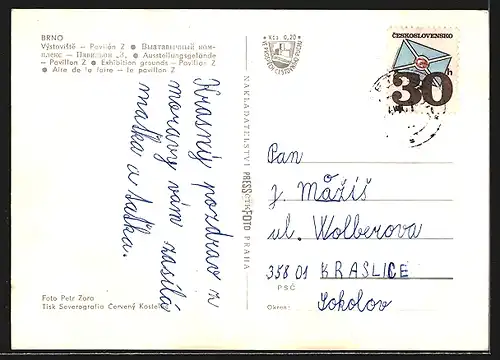 BRNO
Výstaviště — Pavilón Z ● Выставочный ком-
плекс — Павильон „Z" ● Ausstellungsgelände
— Pavillon Z ● Exhibition grounds — Pavilion Z
● Aire de la foire — le pavillon Z
Krasný pozdrav z
moravy vám zasílá
matka a taťka.
Foto Petr Zora
Tisk Severografia Červený Kostelec
NAKLADATELSTVÍ PRESSFOTO PRAHA
Kčs 0,20
ČESKOSLOVENSKO
30h
Pan
J. Mážiš
ul. Wolberova
358 01 KRASLICE
PSČ
Okres: Sokolov